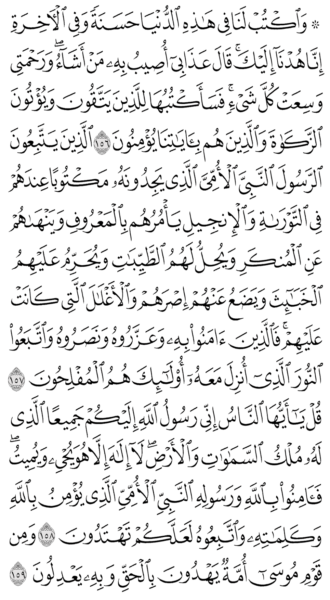 ۞ وَٱكۡتُبۡ لَنَا فِي هَٰذِهِ ٱلدُّنۡيَا حَسَنَةٗ وَفِي ٱلۡأٓخِرَةِ
إِنَّا هُدۡنَآ إِلَيۡكَۚ قَالَ عَذَابِيٓ أُصِيبُ بِهِۦ مَنۡ أَشَآءُۖ وَرَحۡمَتِي
وَسِعَتۡ كُلَّ شَيۡءٖۚ فَسَأَكۡتُبُهَا لِلَّذِينَ يَتَّقُونَ وَيُؤۡتُونَ
ٱلزَّكَوٰةَ وَٱلَّذِينَ هُم بِـَٔايَٰتِنَا يُؤۡمِنُونَ ١٥٦ ٱلَّذِينَ يَتَّبِعُونَ
ٱلرَّسُولَ ٱلنَّبِيَّ ٱلۡأُمِّيَّ ٱلَّذِي يَجِدُونَهُۥ مَكۡتُوبًا عِندَهُمۡ
فِي ٱلتَّوۡرَىٰةِ وَٱلۡإِنجِيلِ يَأۡمُرُهُم بِٱلۡمَعۡرُوفِ وَيَنۡهَىٰهُمۡ
عَنِ ٱلۡمُنكَرِ وَيُحِلُّ لَهُمُ ٱلطَّيِّبَٰتِ وَيُحَرِّمُ عَلَيۡهِمُ
ٱلۡخَبَٰٓئِثَ وَيَضَعُ عَنۡهُمۡ إِصۡرَهُمۡ وَٱلۡأَغۡلَٰلَ ٱلَّتِي كَانَتۡ
عَلَيۡهِمۡۚ فَٱلَّذِينَ ءَامَنُواْ بِهِۦ وَعَزَّرُوهُ وَنَصَرُوهُ وَٱتَّبَعُواْ
ٱلنُّورَ ٱلَّذِيٓ أُنزِلَ مَعَهُۥٓ أُوْلَٰٓئِكَ هُمُ ٱلۡمُفۡلِحُونَ ١٥٧
قُلۡ يَٰٓأَيُّهَا ٱلنَّاسُ إِنِّي رَسُولُ ٱللَّهِ إِلَيۡكُمۡ جَمِيعًا ٱلَّذِي
لَهُۥ مُلۡكُ ٱلسَّمَٰوَٰتِ وَٱلۡأَرۡضِۖ لَآ إِلَٰهَ إِلَّا هُوَ يُحۡيِۦ وَيُمِيتُۖ
فَـَٔامِنُواْ بِٱللَّهِ وَرَسُولِهِ ٱلنَّبِيِّ ٱلۡأُمِّيِّ ٱلَّذِي يُؤۡمِنُ بِٱللَّهِ
وَكَلِمَٰتِهِۦ وَٱتَّبِعُوهُ لَعَلَّكُمۡ تَهۡتَدُونَ ١٥٨ وَمِن
قَوۡمِ مُوسَىٰٓ أُمَّةٞ يَهۡدُونَ بِٱلۡحَقِّ وَبِهِۦ يَعۡدِلُونَ ١٥٩